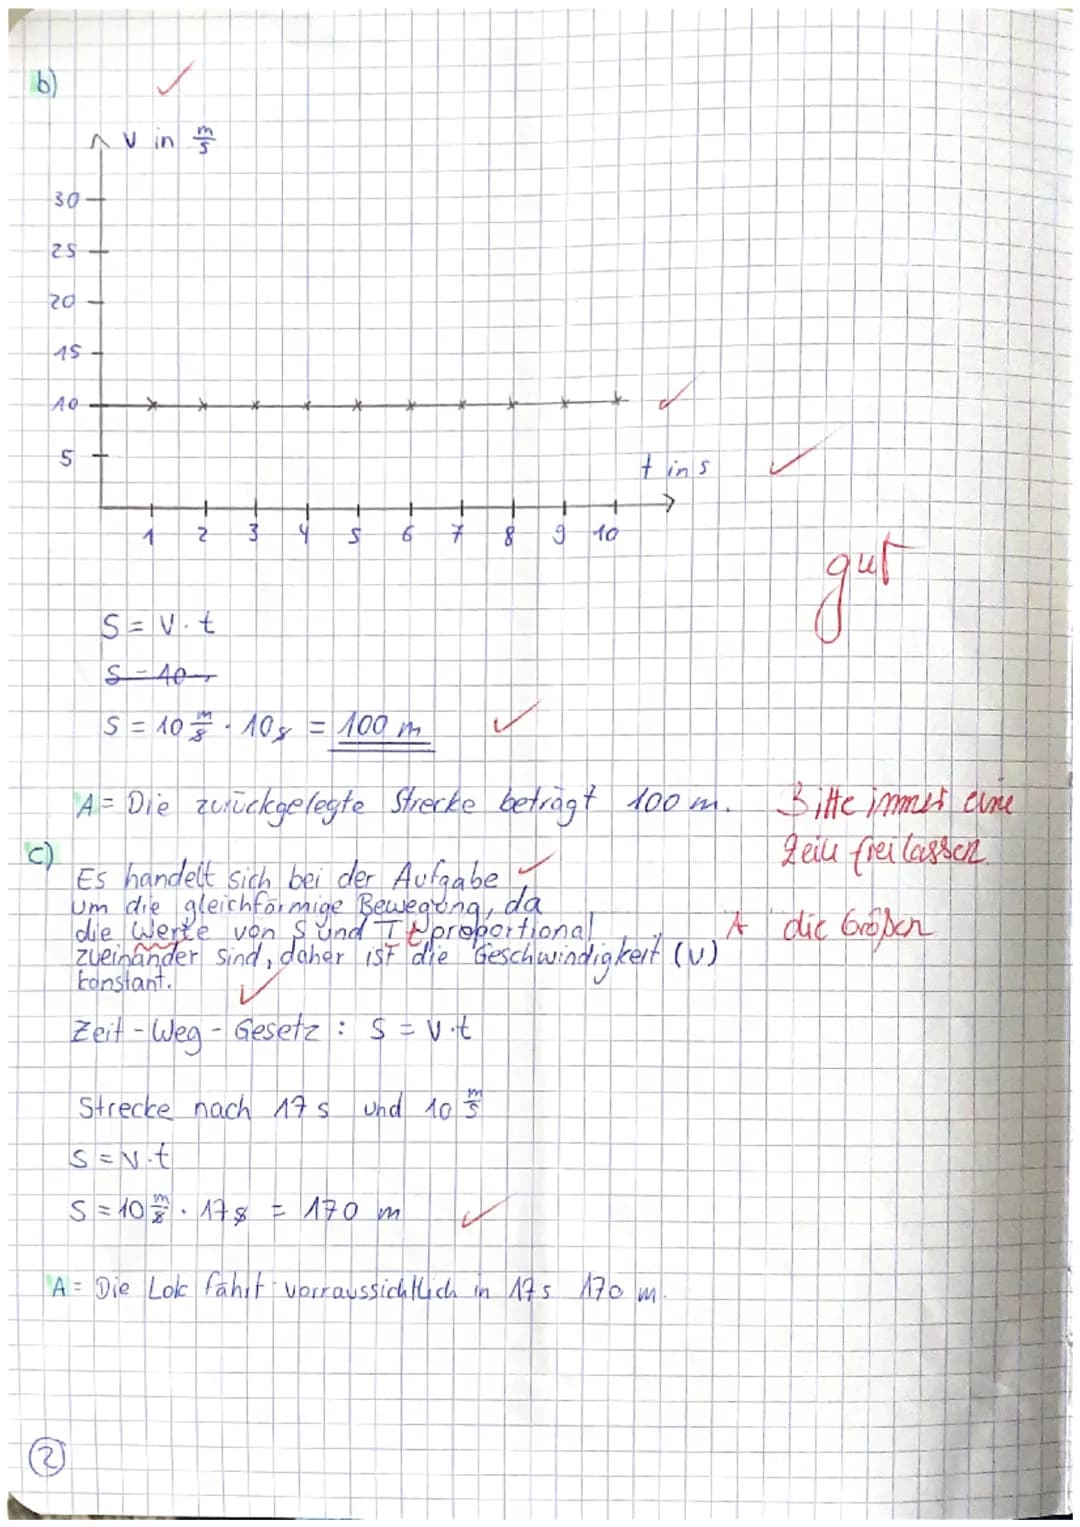 b)
v in m/s
30
25
20
15
10
5
t in s
1 2 3 4 5 6 7 8 9 10
gut
S = v · t
S = 10
S = 10 m/s · 10 s = 100 m
A = Die zurückgelegte Strecke beträgt 100 m.
Bitte immer eine
Zeile freilassen
c)
Es handelt sich bei der Aufgabe
um die gleichförmige Bewegung, da
die Werte von S und T t proportional
A die Größen
zueinander sind, daher ist die Geschwindigkeit (v)
konstant.
Zeit - Weg - Gesetz : S = v · t
Strecke nach 17 s und 10 m/s
S = v · t
S = 10 m/s · 17 s = 170 m
A = Die Lok fährt vorraussichtlich in 17 s 170 m.
2